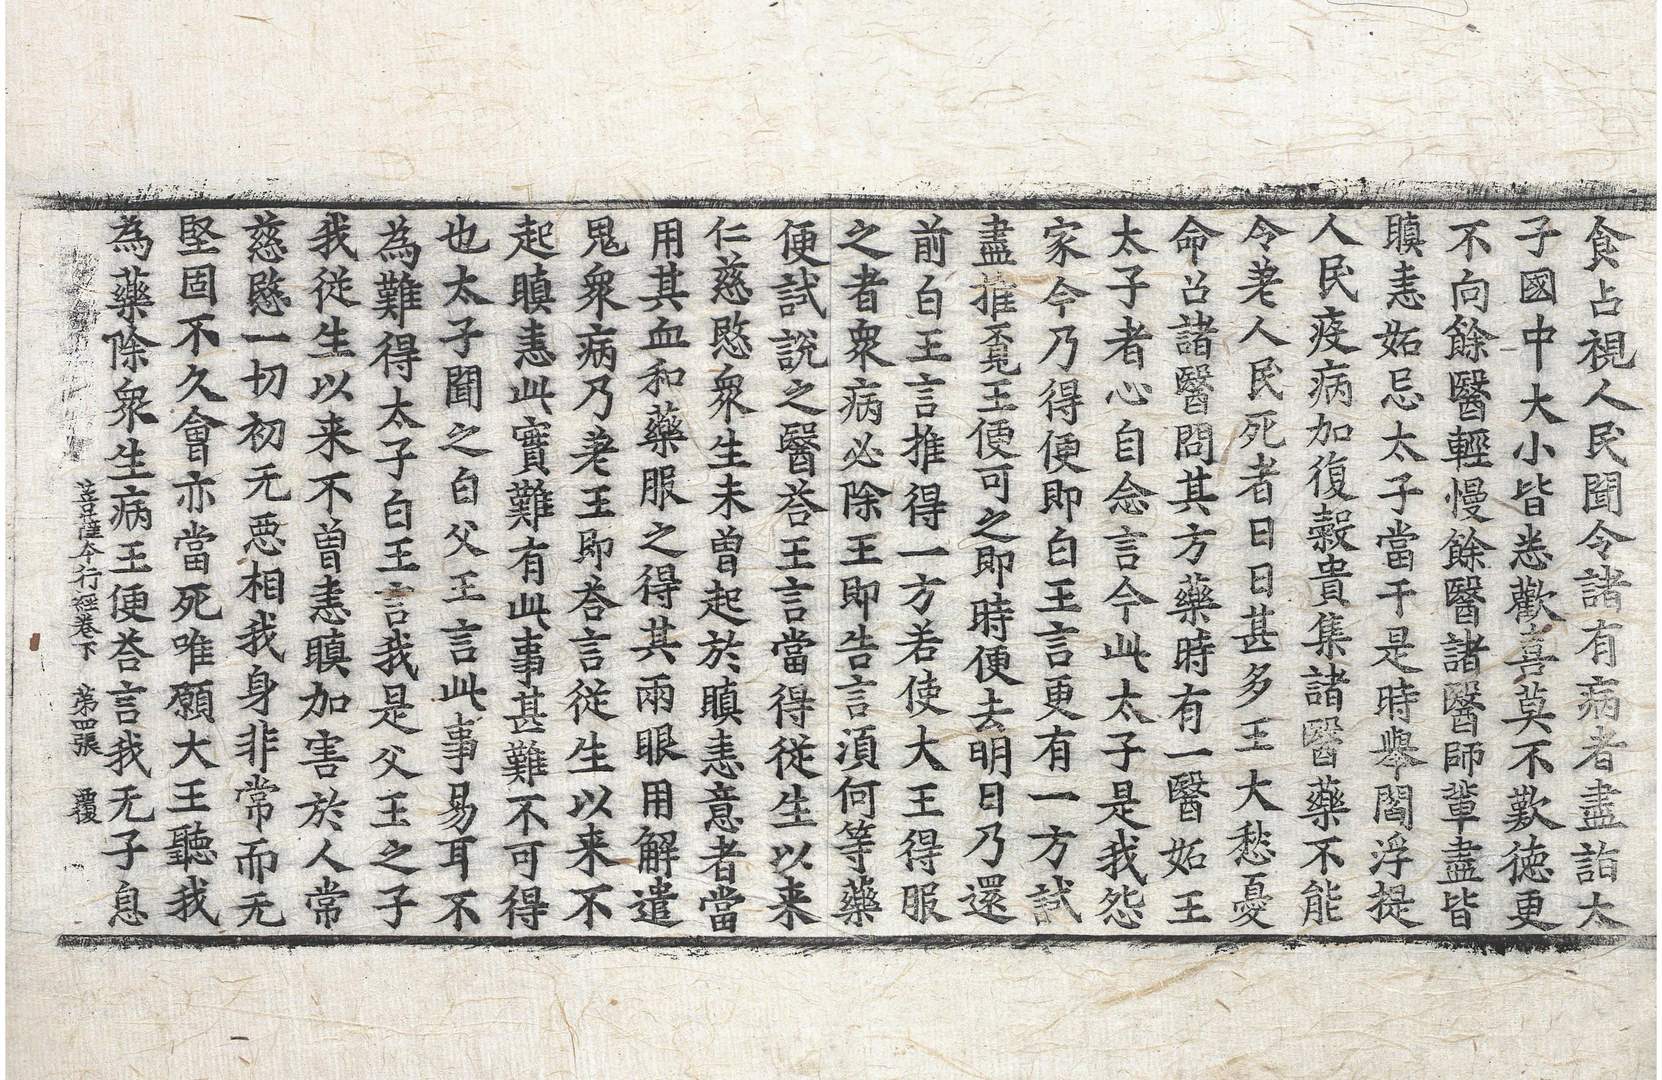 食占視人民聞令諸有病者盡詣太
子國中大小皆悉歡喜莫不歎徳更
不向餘醫輕慢餘醫諸醫師輩盡皆
瞋恚妬忌太子當干是時舉閻浮提
人民疫病加復糓貴集諸醫藥不能
令差人民死者日日甚多王大愁憂
命召諸醫問其方藥時有一醫妬王
太子者心自念言今此太子是我怨
家今乃得便即白王言更有一方試
盡推覓王便可之即時便去明日乃還
前白王言推得一方若使大王得服
之者衆病必除王即告言湏何等藥
便試說之醫荅王言當得從生以来
仁慈愍衆生未曽起於瞋恚意者當
用其血和藥服之得其兩眼用解遣
鬼衆病乃差王即荅言從生以来不
起瞋恚此實難有此事甚難不可得
也太子聞之白父王言此事易耳不
為難得太子白王言我是父王之子
我從生以来不曽恚瞋加害於人常
慈愍一切初无惡相我身非常而无
堅固不久會亦當死唯願大王聽我
為藥除衆生病王便荅言我无子息
菩薩今行經卷下 苐四張 覆